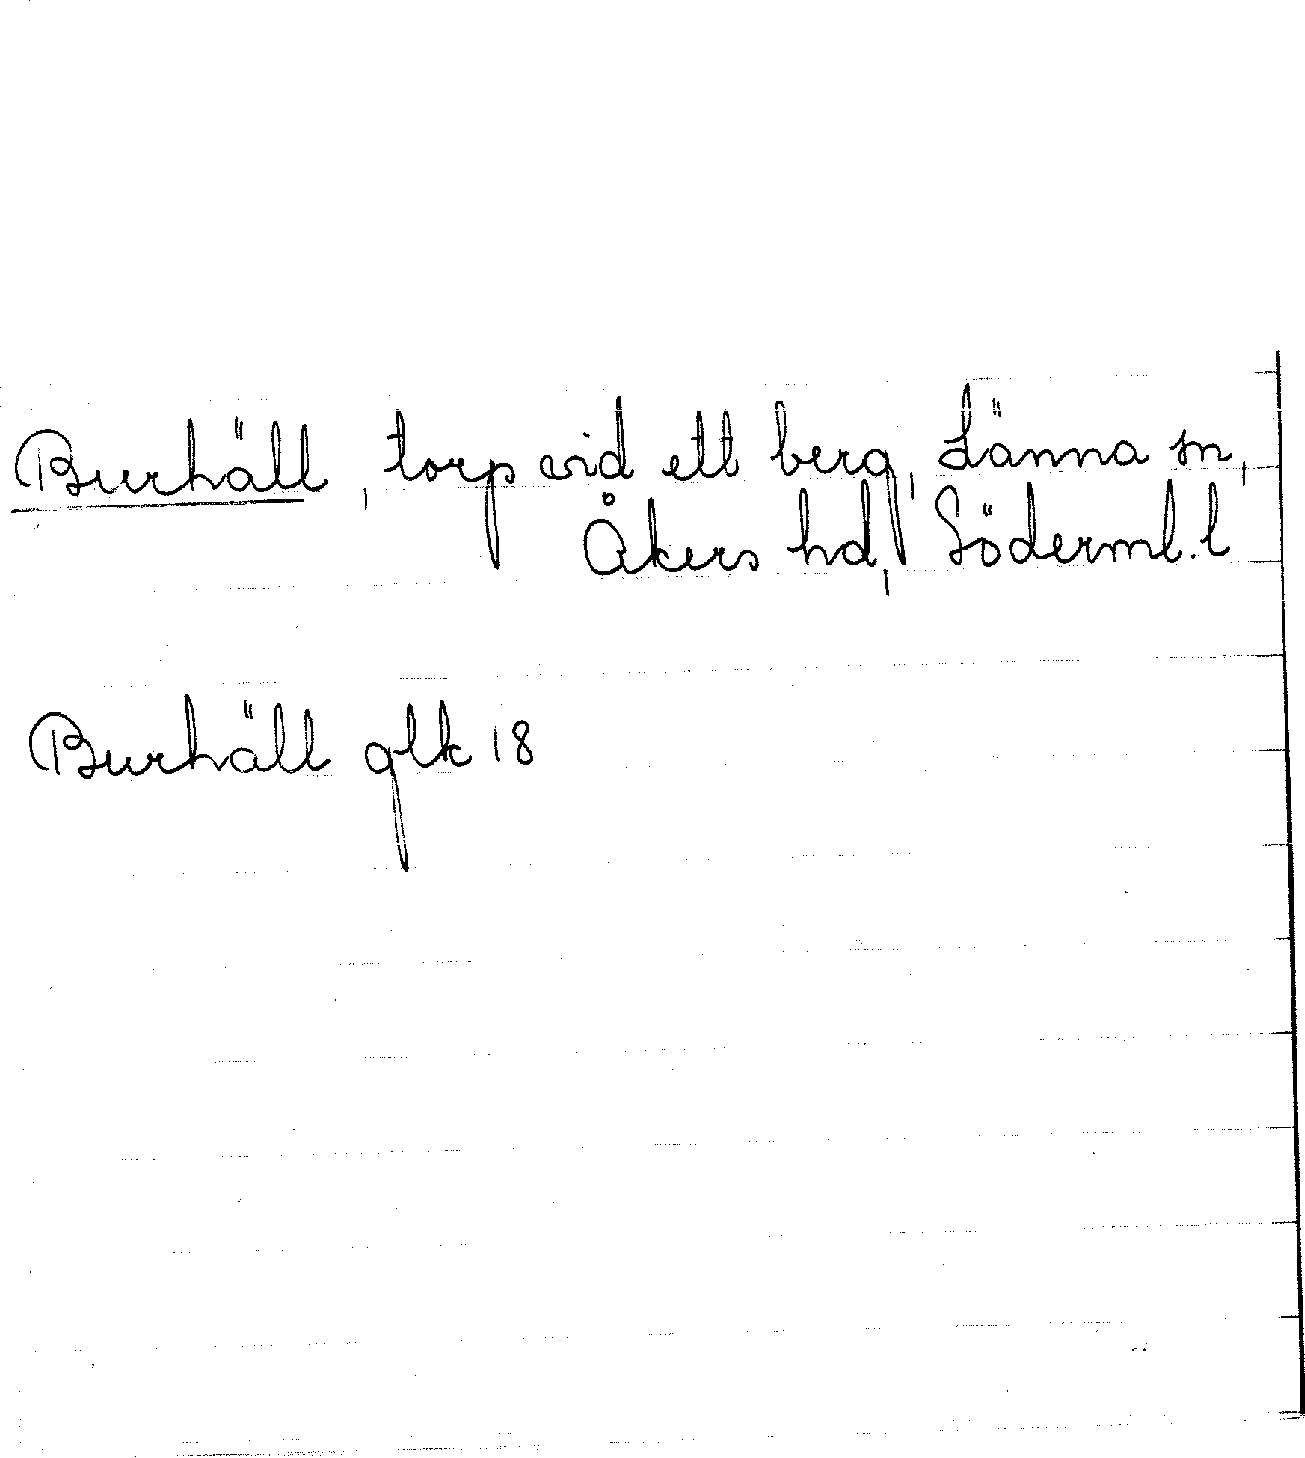 Burhäll, torp vid ett berg, Länna sn,
Åkers hd, Söderml. l
Burhäll glk 18